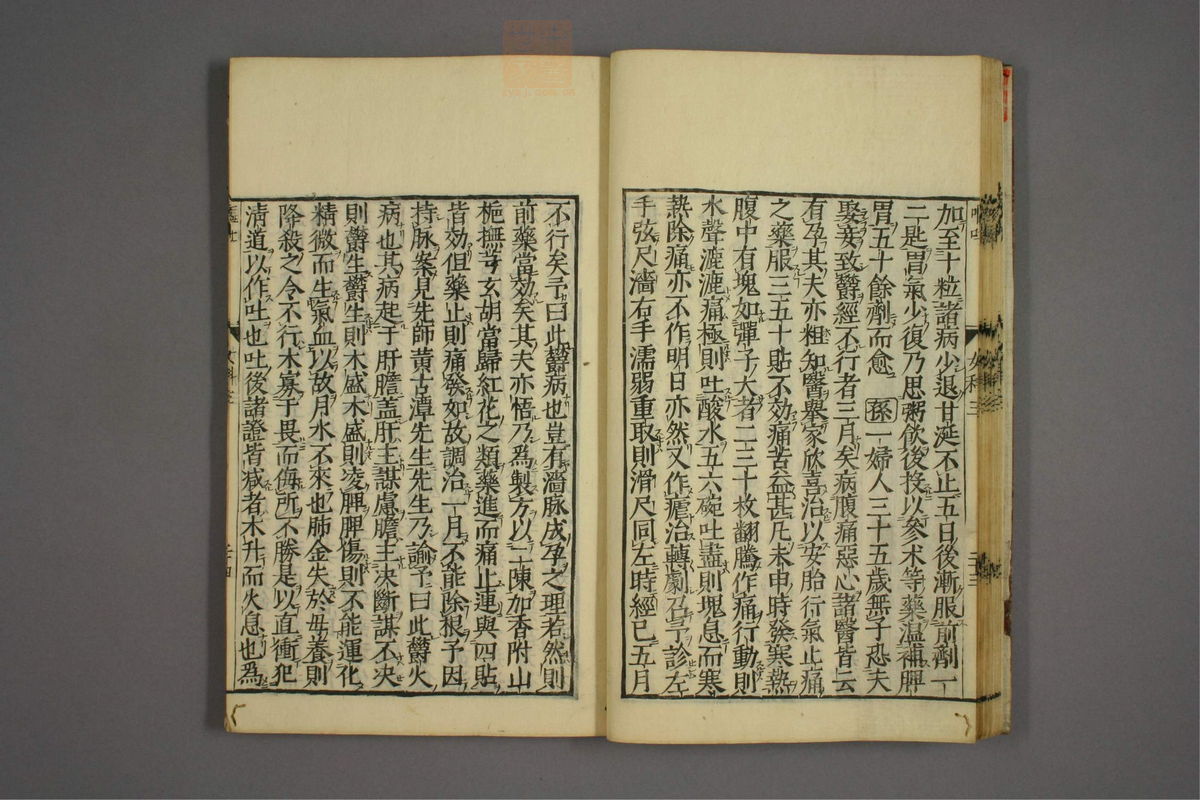 加至十粒諸病少退甘涎不止五日後漸服前劑一
二匙胃氣少復乃思粥飲後投以參朮等藥温補脾
胃五十餘劑而愈 孫一婦人三十五歲無子恐夫
娶妾致欝經不行者三月矣病腹痛惡心諸醫皆云
有孕其夫亦粗知醫舉家欣喜治以安胎行氣止痛
之藥服三五十貼不効痛苦益甚凡未申時發寒熱
腹中有塊如彈子大者二三十枚翻騰作痛行動則
水聲漉漉痛極則吐酸水五六碗吐盡則塊息而寒
熱除痛亦不作明日亦然又作瘧治轉劇召予診左
手弦尺濇右手濡弱重取則滑尺同左時經已五月
不行矣予曰此欝病也豈有濇脉成孕之理若然則
前藥當効矣其夫亦悟乃為製方以二陳加香附山
梔撫芎玄胡當歸紅花之類藥進而痛止連與四貼
皆効但藥止則痛發如故調治一月不能除根予因
持脉案見先師黃古潭先生先生乃諭予曰此欝火
病也其病起于肝膽盖肝主謀慮膽主决斷謀不决
則欝生欝生則木盛木盛則凌脾脾傷則不能運化
精微而生氣血以故月水不來也肺金失於母養則
降殺之令不行木寡于畏而侮所不勝是以直衝犯
清道以作吐也吐後諸證皆减者木升而火息也為
女科三
二十四